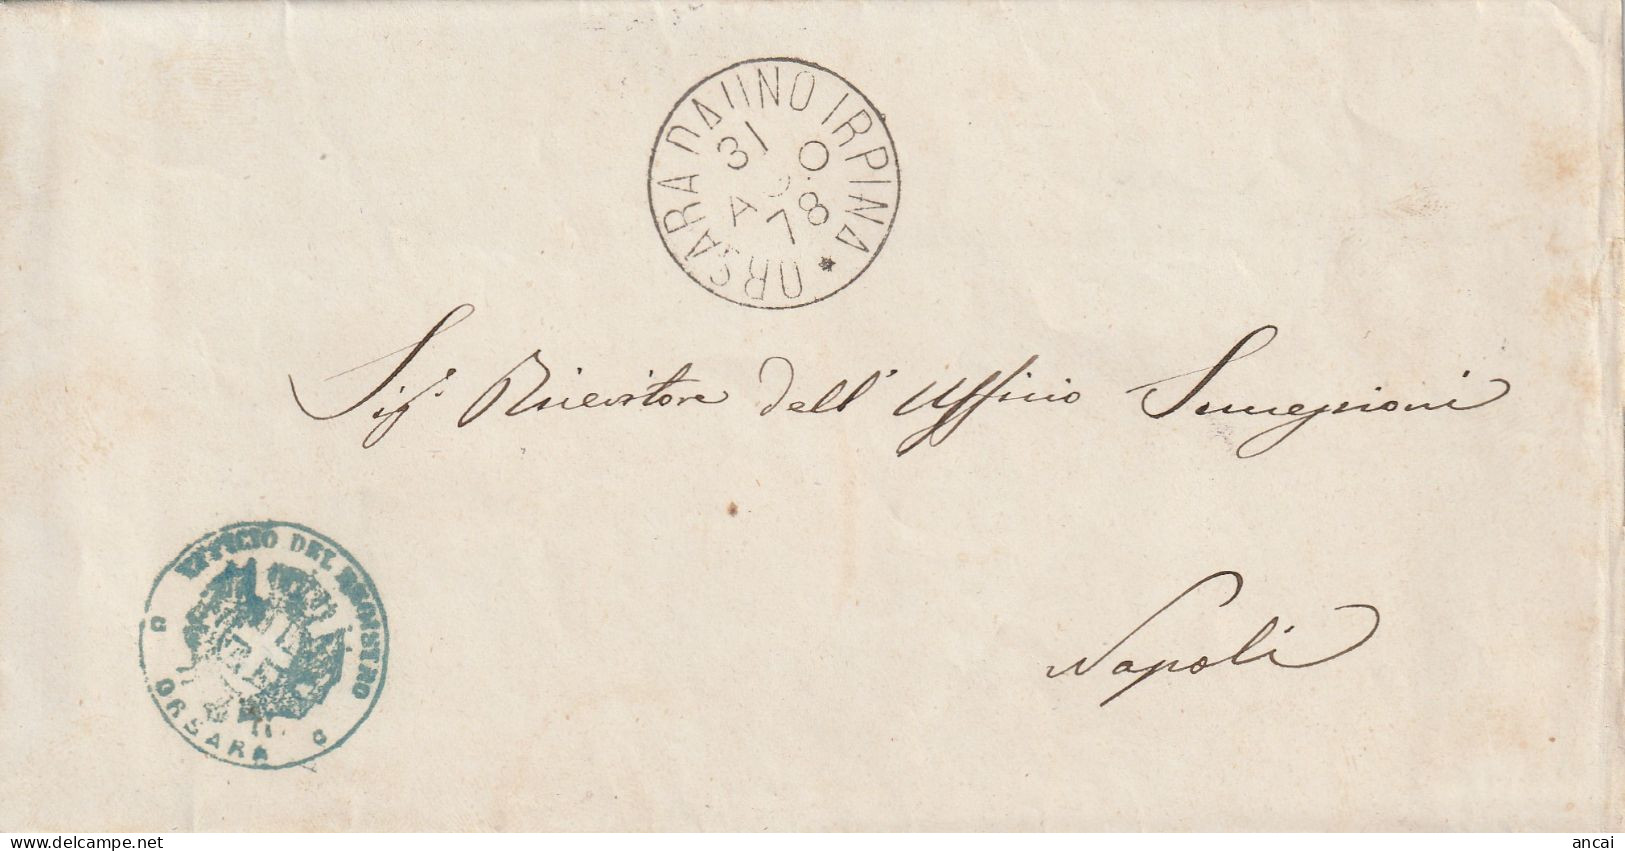 ORSARA DAUNO IRPINA *
31 O
78
Sigr Ricevitore dell' Ufficio Successioni
UFFICIO DEL REGISTRO
ORSARA
Napoli
www.delcampe.net
ancai